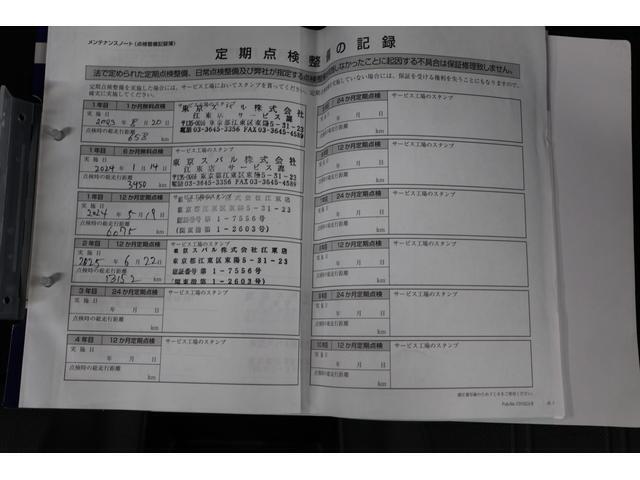 メンテナンスノート(点検整備記録簿)
定期点検整備の記録
定期点検整備を実施した場合には、サービス工場においてスタンプを貰ってください。
1年目 1か月無料点検
サービス工場のスタンプ
実施日
2023年 8月 20日
点検時の総走行距離
658 km
東京スバル株式会社
江東店 サービス課
〒135-0016 東京都江東区東陽5-31-23
電話03-3645-3356 FAX03-3645-4589
1年目 6か月無料点検
サービス工場のスタンプ
実施日
2024年 1月 14日
点検時の総走行距離
3450 km
東京スバル株式会社
江東店 サービス課
〒135-0016 東京都江東区東陽5-31-23
電話03-3645-3356 FAX03-3645-4589
1年目 12か月定期点検
サービス工場のスタンプ
実施日
2024年 5月 19日
点検時の総走行距離
6075 km
東京スバル株式会社江東店
東京都江東区東陽5-31-23
認証番号第1-7556号
(関東指第1-2603号)
2年目 12か月定期点検
サービス工場のスタンプ
実施日
2025年 6月 22日
点検時の総走行距離
13152 km
東京スバル株式会社江東店
東京都江東区東陽5-31-23
認証番号第1-7556号
(関東指第1-2603号)
3年目 24か月定期点検
サービス工場のスタンプ
実施日
年 月 日
点検時の総走行距離
km
4年目 12か月定期点検
サービス工場のスタンプ
実施日
年 月 日
点検時の総走行距離
km
24か月定期点検
サービス工場のスタンプ
年 月 日
点検時の総走行距離
km
12か月定期点検
サービス工場のスタンプ
年 月 日
点検時の総走行距離
km
24か月定期点検
サービス工場のスタンプ
年 月 日
点検時の総走行距離
km
12か月定期点検
サービス工場のスタンプ
年 月 日
点検時の総走行距離
km
24か月定期点検
サービス工場のスタンプ
年 月 日
点検時の総走行距離
km
12か月定期点検
サービス工場のスタンプ
年 月 日
点検時の総走行距離
km